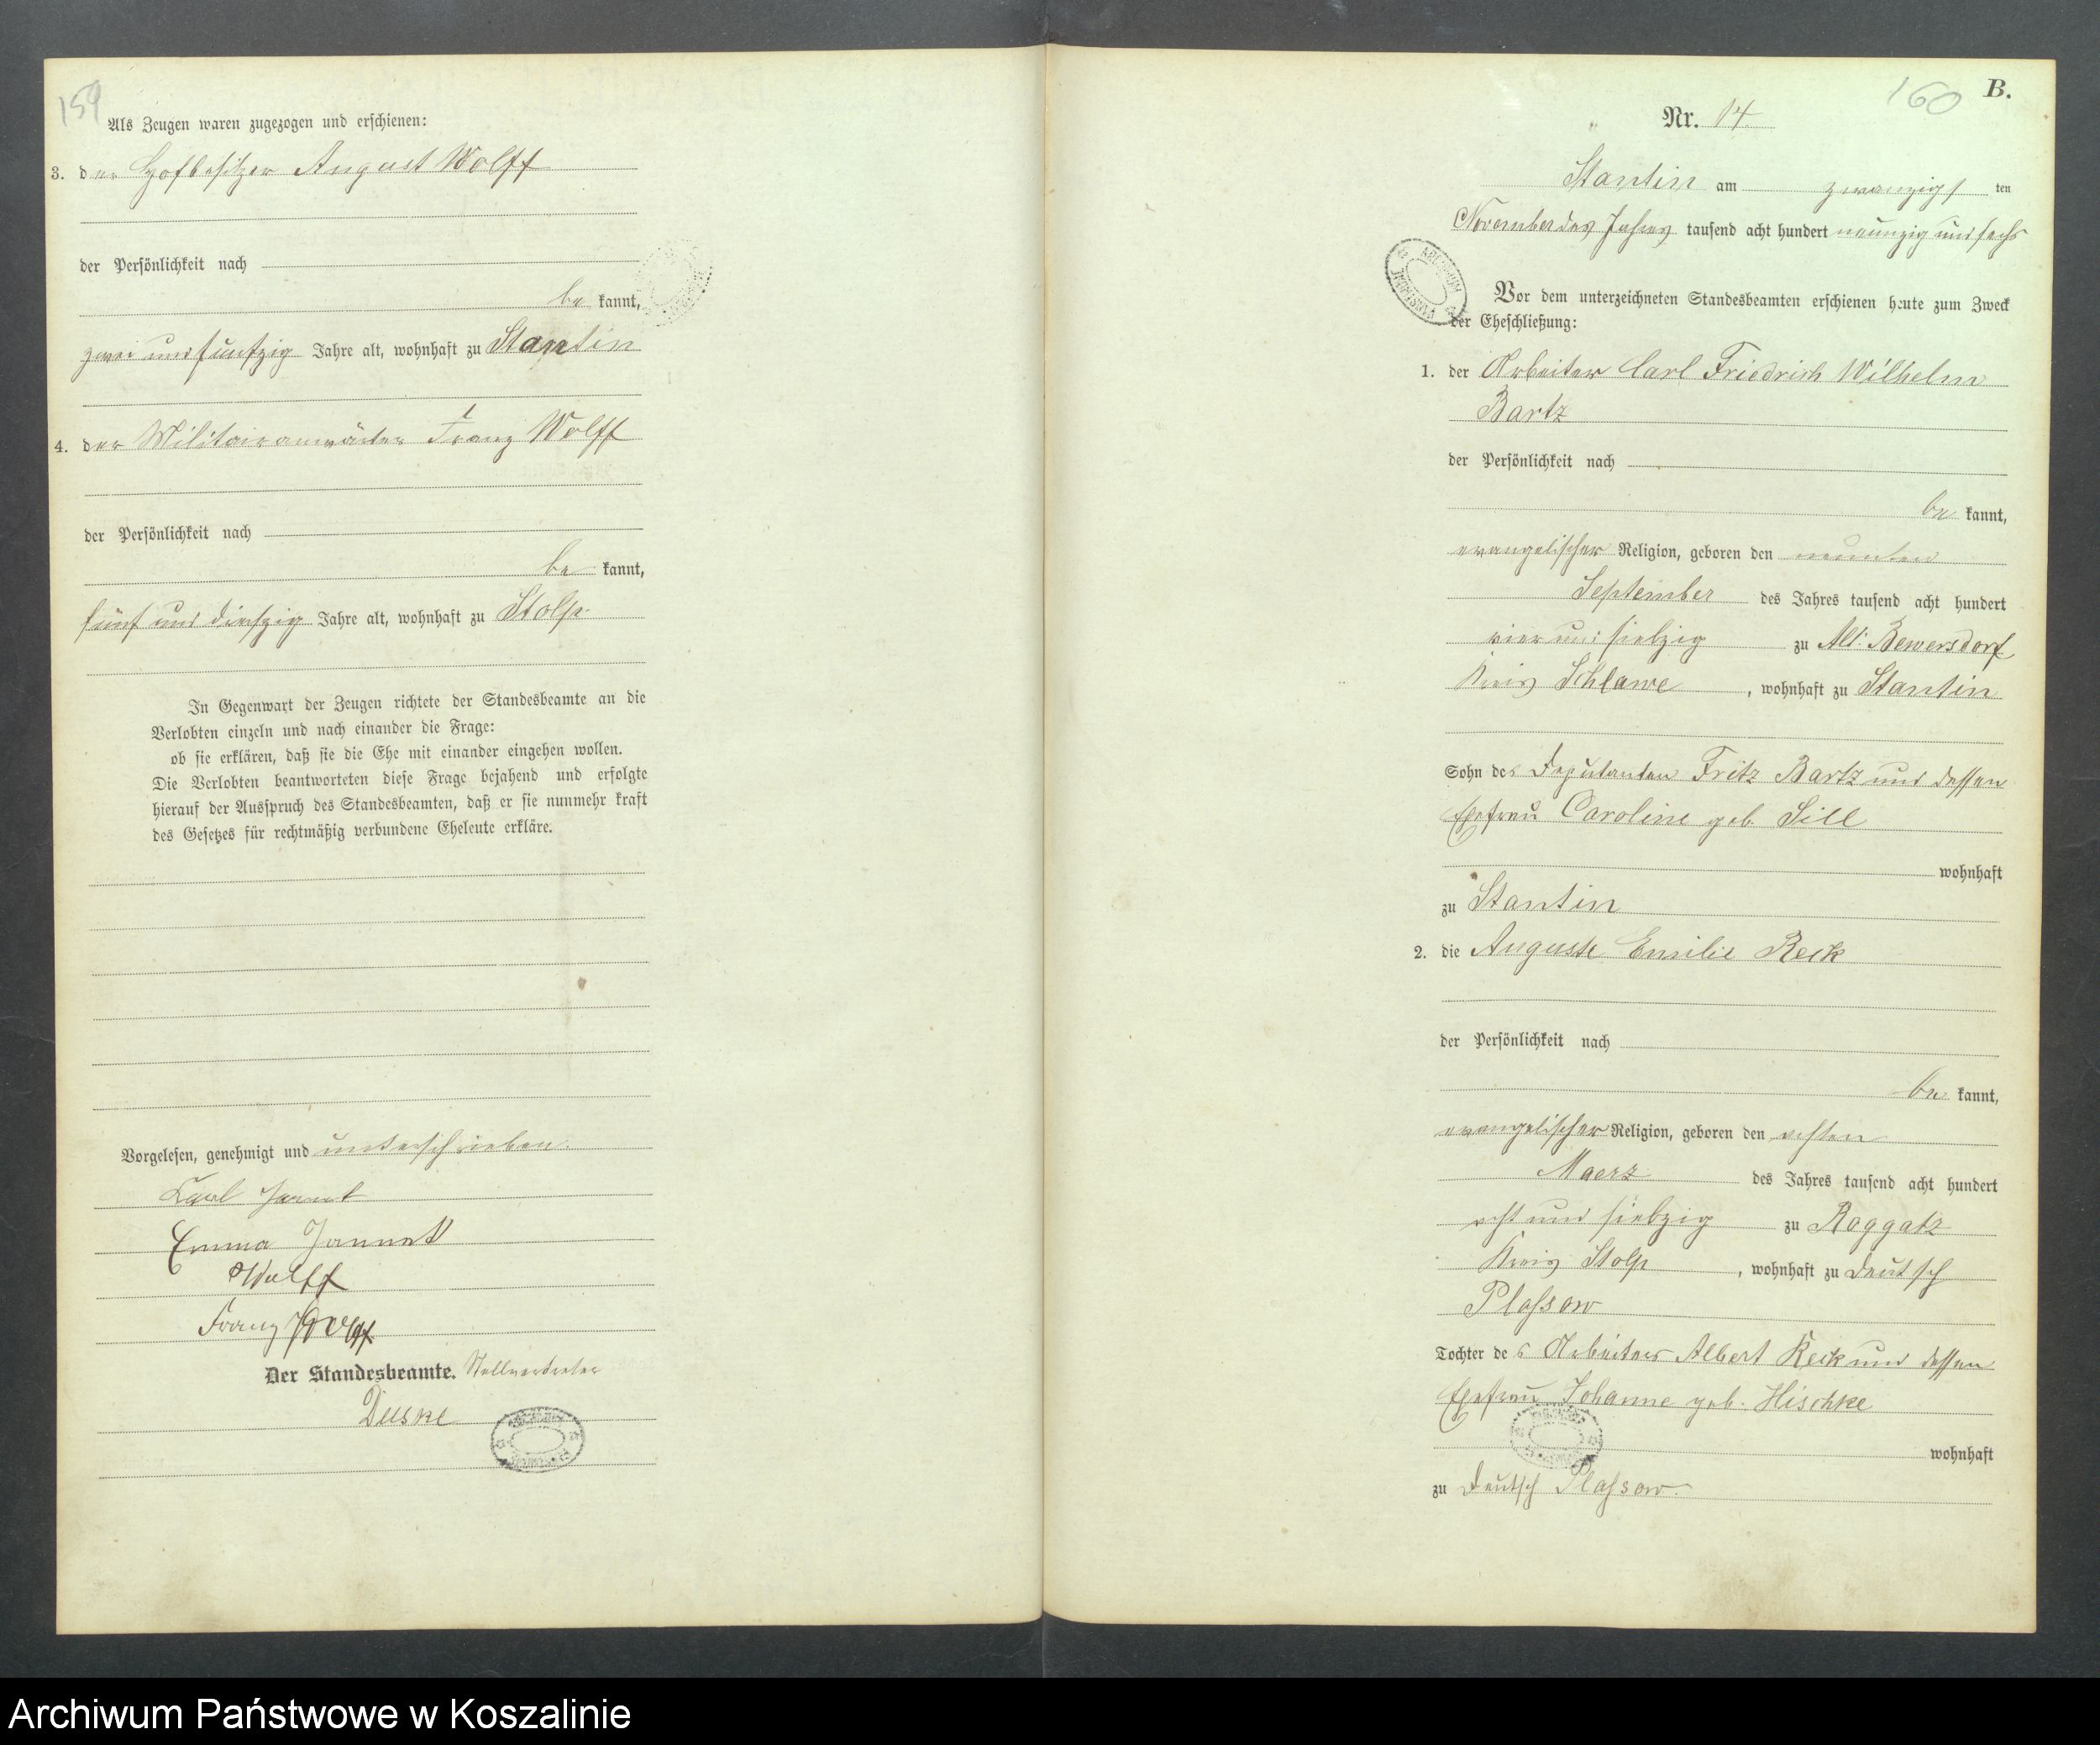 159
Als Zeugen waren zugezogen und erschienen:
3. der Hofbesitzer August Wolff
der Persönlichkeit nach
be kannt,
zwei und fünfzig Jahre alt, wohnhaft zu Stantin
4. der Militairanwärter Franz Wolff
der Persönlichkeit nach
be kannt,
fünf und dreißig Jahre alt, wohnhaft zu Stolp.
In Gegenwart der Zeugen richtete der Standesbeamte an die
Verlobten einzeln und nach einander die Frage:
ob sie erklären, daß sie die Ehe mit einander eingehen wollen.
Die Verlobten beantworteten diese Frage bejahend und erfolgte
hierauf der Ausspruch des Standesbeamten, daß er sie nunmehr kraft
des Gesetzes für rechtmäßig verbundene Eheleute erkläre.
Vorgelesen, genehmigt und unterschrieben.
Karl
Emma
Wolff
Franz Wolff
Der Standesbeamte. Stellvertreter
160 B.
Nr. 14.
Stantin am zwanzigs ten
November des Jahres tausend acht hundert neunzig und sechs
Vor dem unterzeichneten Standesbeamten erschienen heute zum Zweck
der Eheschließung:
1. der Arbeiter Carl Friedrich Wilhelm
Bartz
der Persönlichkeit nach
be kannt,
evangelischer Religion, geboren den neunten
September des Jahres tausend acht hundert
vier und siebzig zu Alt: Bewersdorf
Kreis Schlawe, wohnhaft zu Stantin
Sohn des Deputanten Fritz Bartz und dessen
Ehefrau Caroline geb. Sill
wohnhaft
zu Stantin
2. die Auguste Emilie Reck
der Persönlichkeit nach
be kannt,
evangelischer Religion, geboren den achten
Maerz des Jahres tausend acht hundert
acht und siebzig zu Roggatz
Kreis Stolp, wohnhaft zu Deutsch
Plassow
Tochter des Arbeiters Albert Reck und dessen
Ehefrau Johanne geb. Hischke
wohnhaft
zu Deutsch Plassow.
Archiwum Państwowe w Koszalinie